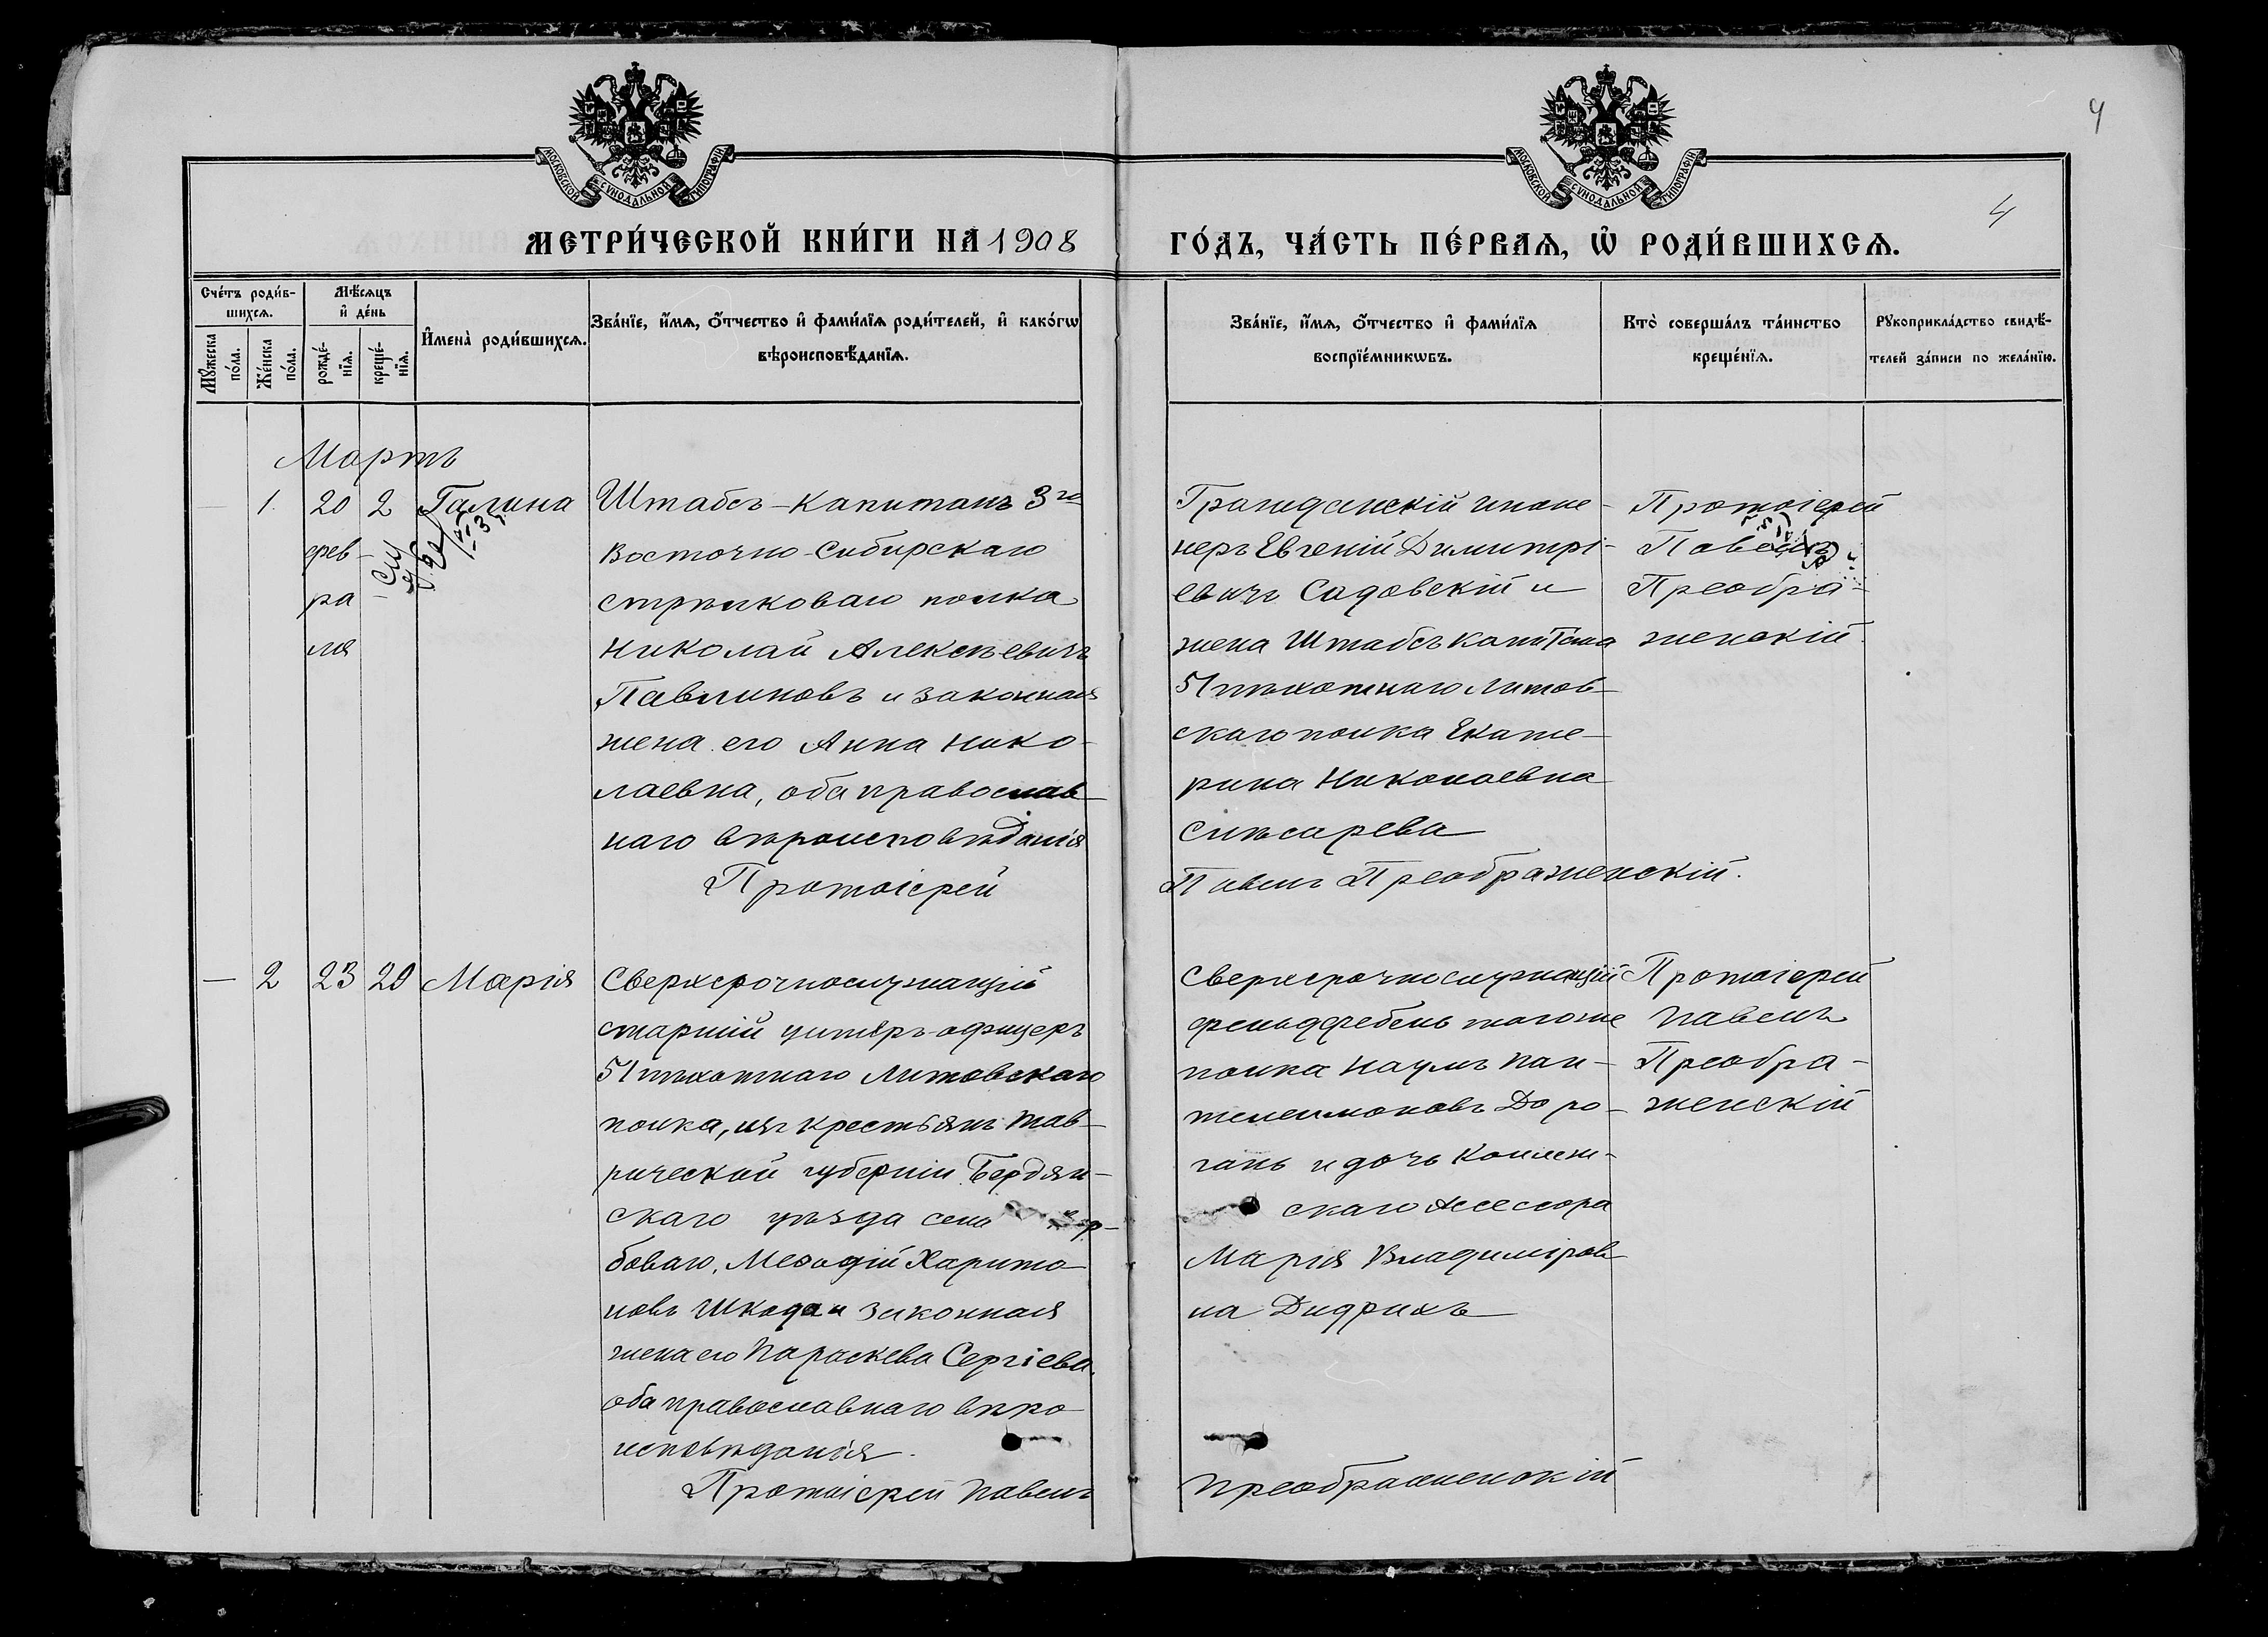 4
МОСКОВСКОЙ СѴНОДАЛЬНОЙ ТИПОГРАФІИ
МОСКОВСКОЙ СѴНОДАЛЬНОЙ ТИПОГРАФІИ
4
МЕТРИ́ЧЕСКОЙ КНИ́ГИ НА 1908
ГО́ДЪ, ЧА́СТЬ ПЕ́РВАѦ, Ѡ҆ РОДИ́ВШИХСѦ.
Сче́тъ роди́в-
шихсѧ.
Мꙋ́жеска
по́ла.
Же́нска
по́ла.
Мѣ́сѧцъ
и҆ де́нь
рожде́-
нїѧ.
креще́-
нїѧ.
И҆мена̀ роди́вшихсѧ.
Зва́нїе, и҆́мѧ, ѻ҆́тчество и҆ фами́лїѧ роди́телей, и҆ како́гѡ
вѣроисповѣ́данїѧ.
Зва́нїе, и҆́мѧ, ѻ҆́тчество и҆ фами́лїѧ
воспрїе́мникѡвъ.
Кто̀ соверша́лъ та́инство
креще́нїѧ.
Рꙋкоприкла́дство свидѣ́-
телей за́писи по жела́нїю.
Мартъ
1. 20 2 Галина
фев-
ра
ля
Штабсъ-Капитанъ 3го
Восточно-Сибирскаго
стрѣлковаго полка
Николай Алексѣевичъ
Павлиновъ и законная
жена его Анна Нико-
лаевна, оба православ-
наго вѣроисповѣданія
Протоіерей
Гражданскій инже-
неръ Евгеній Димитрі-
евичъ Садовскій и
жена Штабсъ Капитана
51 пѣхотнаго Литов-
скаго полка Екате-
рина Николаевна
Слѣсарева
Павелъ Преображенскій.
Протоіерей
Павелъ
Преобра-
женскій.
— 2 23 20 Марія
Сверхсрочнослужащій
старшій унтеръ-офицеръ
51 пѣхотнаго Литовскаго
полка, изъ крестьянъ Тав-
рической губерніи Бердян-
скаго уѣзда села
боваго, Меѳодій Харито-
новъ Шкода и законная
жена его Параскева Сергіева,
оба православнаго вѣро-
исповѣданія.
Протоіерей Павелъ
Сверхсрочнослужащій
фельдфебель того же
полка Наумъ Пан-
телеимоновъ Доро-
гань и дочь Коллеж-
скаго Асессора
Марія Владимиров-
на Дидрихъ
Преображенскій
Протоіерей
Павелъ
Преобра-
женскій